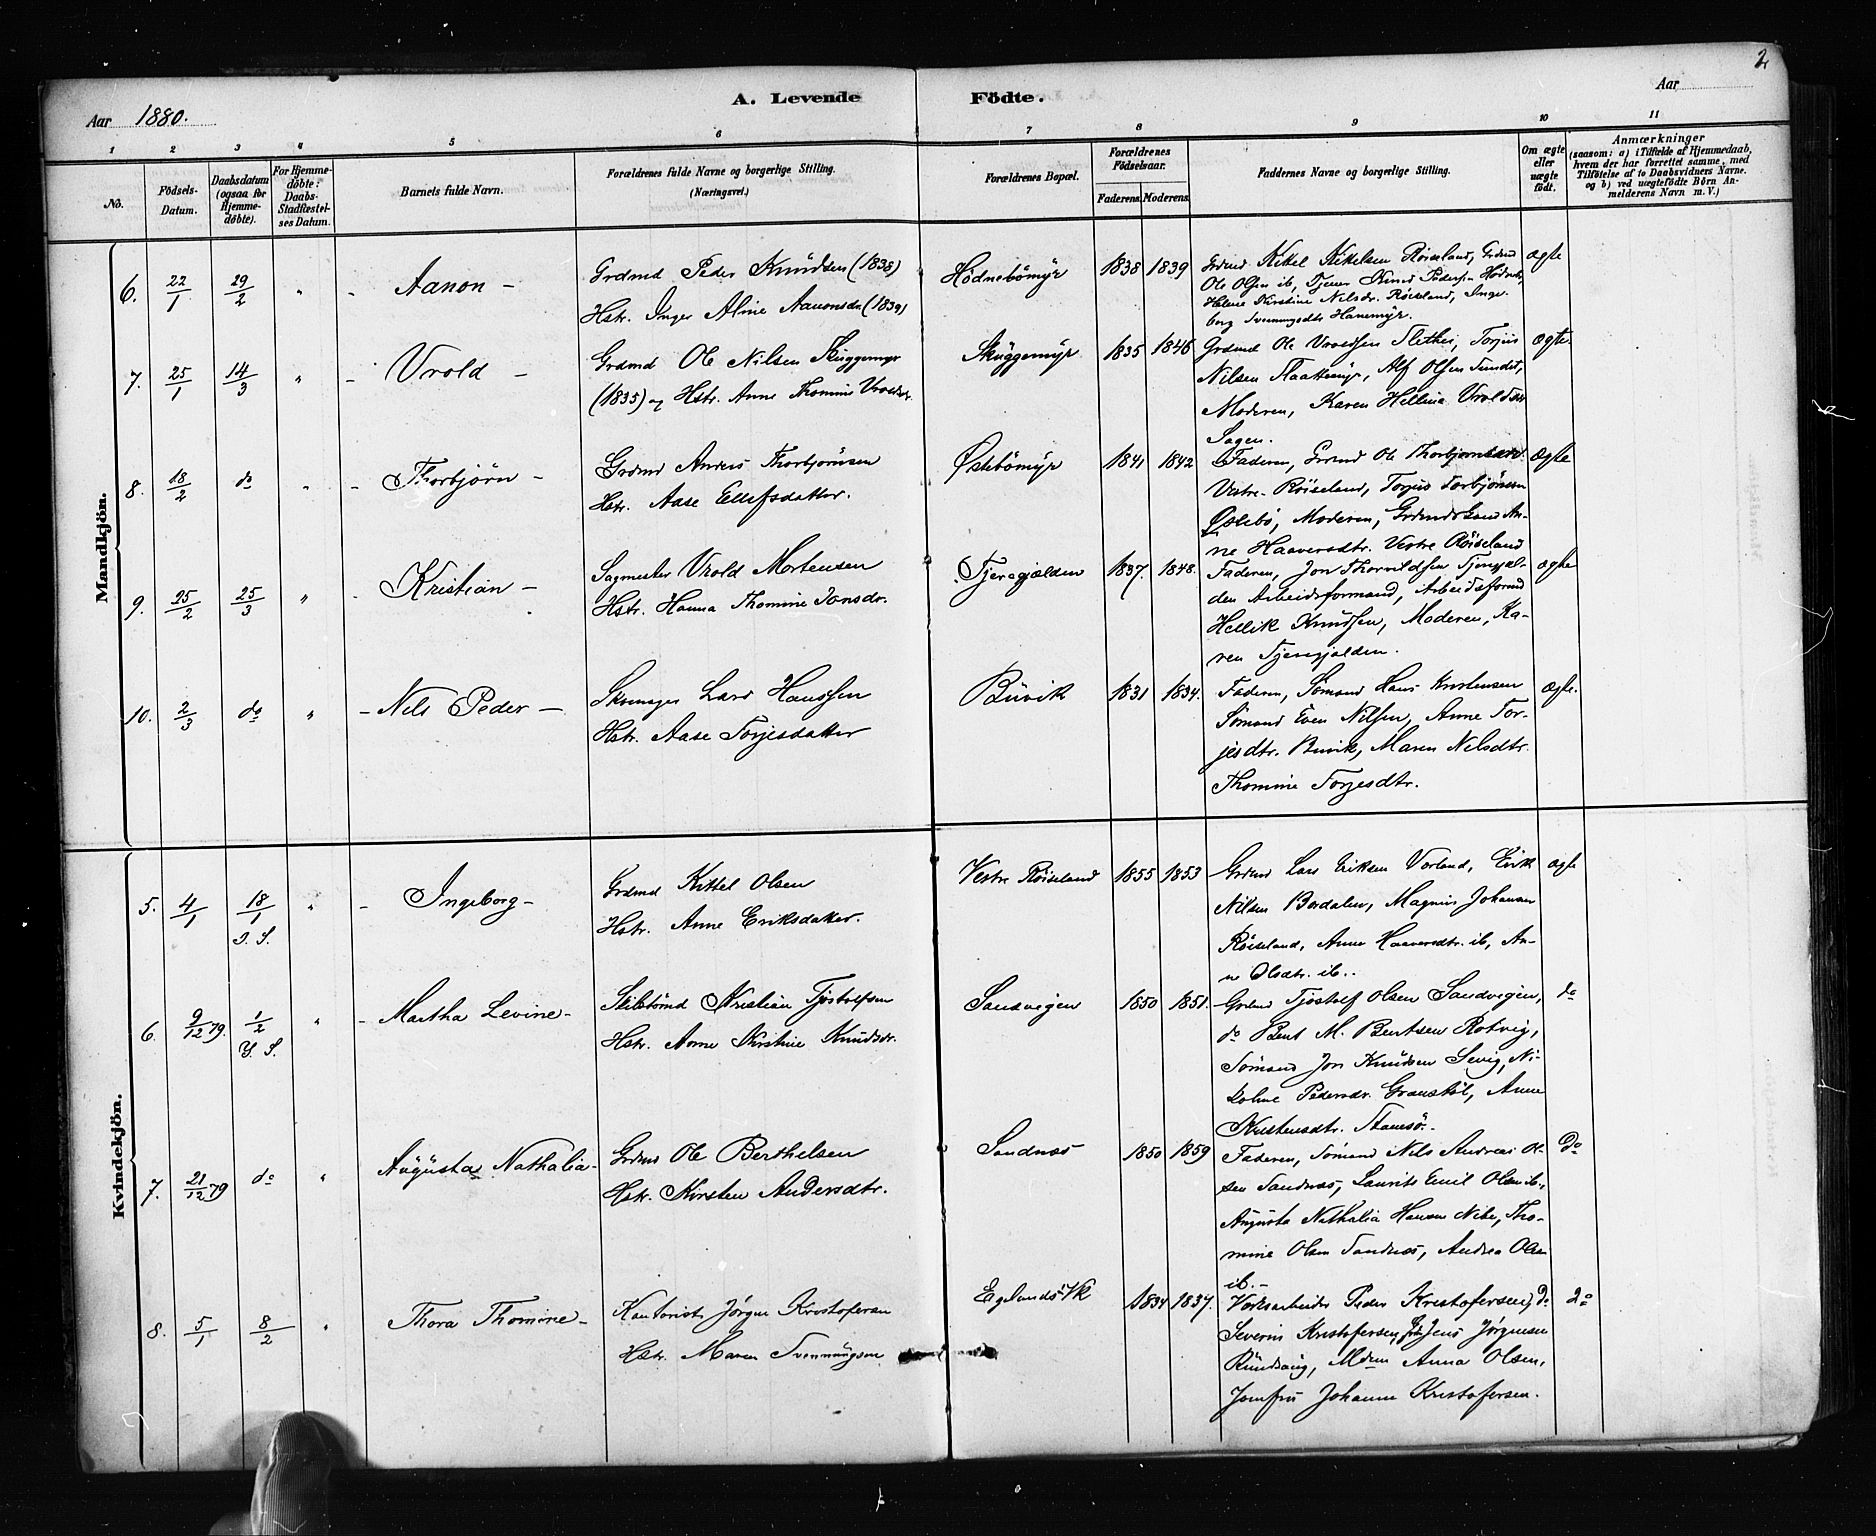 2
Aar 1880.
A. Levende Födte.
Aar
1 2 3 4 5 6 7 8 9 10 11
No.
Födsels-
Datum.
Daabsdatum
(ogsaa for
Hjemme-
döbte).
For Hjemme-
döbte:
Daabs-
Stadfæstel-
ses Datum.
Barnets fulde Navn.
Forældrenes fulde Navne og borgerlige Stilling.
(Næringsvei.)
Forældrenes Bopæl.
Forældrenes
Födselsaar.
Faderens. Moderens.
Faddernes Navne og borgerlige Stilling.
Om ægte
eller
uægte
födt.
Anmærkninger
(saasom: a) i Tilfælde af Hjemmedaab,
hvem der har forrettet samme, med
Tilföielse af to Daabsvidners Navne.
og b) ved uægtefödte Börn An-
melderens Navn m. V.)
Mandkjön.
6. 22/1 29/2 " - Aanon -
Grdmd Peder Knudsen (1838)
Hstr. Inger Aline Aanonsdtr (1839)
Hödnebömyr 1838 1839
Grdmd Kittel Kittelsen Röiseland, Grdmd
Ole Olsen ib, Tjener Knud Pedersen Hödnebö,
Helene Kirstine Nilsdr. Röiseland, Inge-
borg Svenningsdtr Hanemyr.
ægte
7. 25/1 14/3 " - Vrold -
Grdmd Ole Nilsen Skuggemyr
(1835) og Hstr. Anne Thomine Vroldsdr.
Skuggemyr 1835 1846
Grdmd Ole Vroldsen Slethei, Torjus
Nilsen Flaattemyr, Alf Olsen Sundet,
Moderen, Karen Hellina Vroldsdtr
Sagen.
ægte.
8. 18/2 do " - Thorbjörn -
Grdmd Anders Thorbjörnsen
Hstr. Aase Ellefsdatter.
Østebömyr 1841 1842
Faderen, Grdmd Ole Thorbjørnsen
Vestre Röiseland, Torjus Torbjörnsen
Østebö, Moderen, Grdmdskone An-
ne Haaversdtr. Vestre Röiseland
ægte
9. 25/2 25/3 " - Kristian -
Sagmester Vrold Mortensen
Hstr. Hanna Thomine Jonsdr.
Tjeregjælden 1837. 1848.
Faderen, Jon Thorvildsen Tjeregjæl-
den Arbeidsformand, Arbeidsformd
Hellik Knudsen, Moderen, Ka-
ren Tjeregjælden.
ægte
10. 2/3 do " - Nils Peder -
Lars Hanssen
Hstr. Aase Torjesdatter
Buvik 1831 1834.
Faderen, Sömand Hans Kristensen
Sömand Even Nilsen, Anne Tor-
jesdtr. Buvik, Maren Nelsdtr.
Thomine Torjesdtr.
ægte.
Kvindekjön.
5. 4/1 18/1 " - Ingeborg -
J. S.
Grdmd Kittel Olsen
Hstr. Anne Eriksdatter.
Vestre Röiseland 1855 1853
Grdmd Lars Eriksen Vorland, Erik
Nilsen Bordalen, Magnus Johansen
Röiseland, Anne Haaversdtr. ib, An-
ne Olsdtr. ib..
ægte
6. 9/12 79. 1/2 " - Martha Levine -
Y. S.
Kristian Tjöstolfsen
Hstr. Anne Kirstine Knudsdr.
Sandvigen 1850 1851.
Grdmd Tjöstolf Olsen Sandvigen,
do Bent M. Bentsen Rotvig,
Sömand Jon Knudsen Sevig, Ni-
koline Pedersdr. Granstöl, Anne
Kristensdtr. Stamsö.
do
7. 21/12 79 do " Augusta Nathalia -
Grdmd Ole Berthelsen
Hstr. Kirsten Andersdtr.
Sandnæs 1850 1859
Faderen, Sömand Nils Andreas Ol-
sen Sandnæs, Laurits Emil Olsen ib.,
Augusta Nathalia Hansen Nibe, Tho-
mine Olsen Sandnæs, Andrea Olsen
ib.-
Do
8. 5/1 8/2 " Thora Thomine -
Kontorist Jörgen Kristofersen
Hstr. Maren Svenningsen
Egelandsvk 1834 1837.
Verksarbeider Peder Kristofersen, do
Severin Kristofersen, Jens Jörgensen
Rundsaug, Anna Olsen,
Jomfru Johanne Kristofersen.
Do